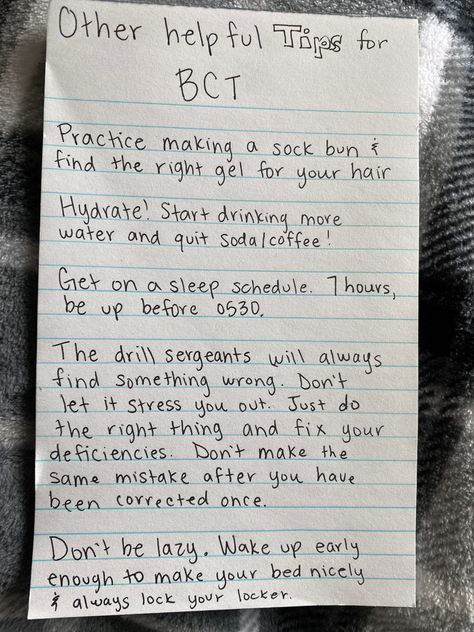 Other helpful Tips for
BCT
Practice making a sock bun &
find the right gel for your hair
Hydrate! Start drinking more
water and quit soda/coffee!
Get on a sleep schedule. 7 hours,
be up before 0530.
The drill sergeants will always
find something wrong. Don't
let it stress you out. Just do
the right thing and fix your
deficiencies. Don't make the
same mistake after you have
been corrected once.
Don't be lazy. Wake up early
enough to make your bed nicely
& always lock your locker.